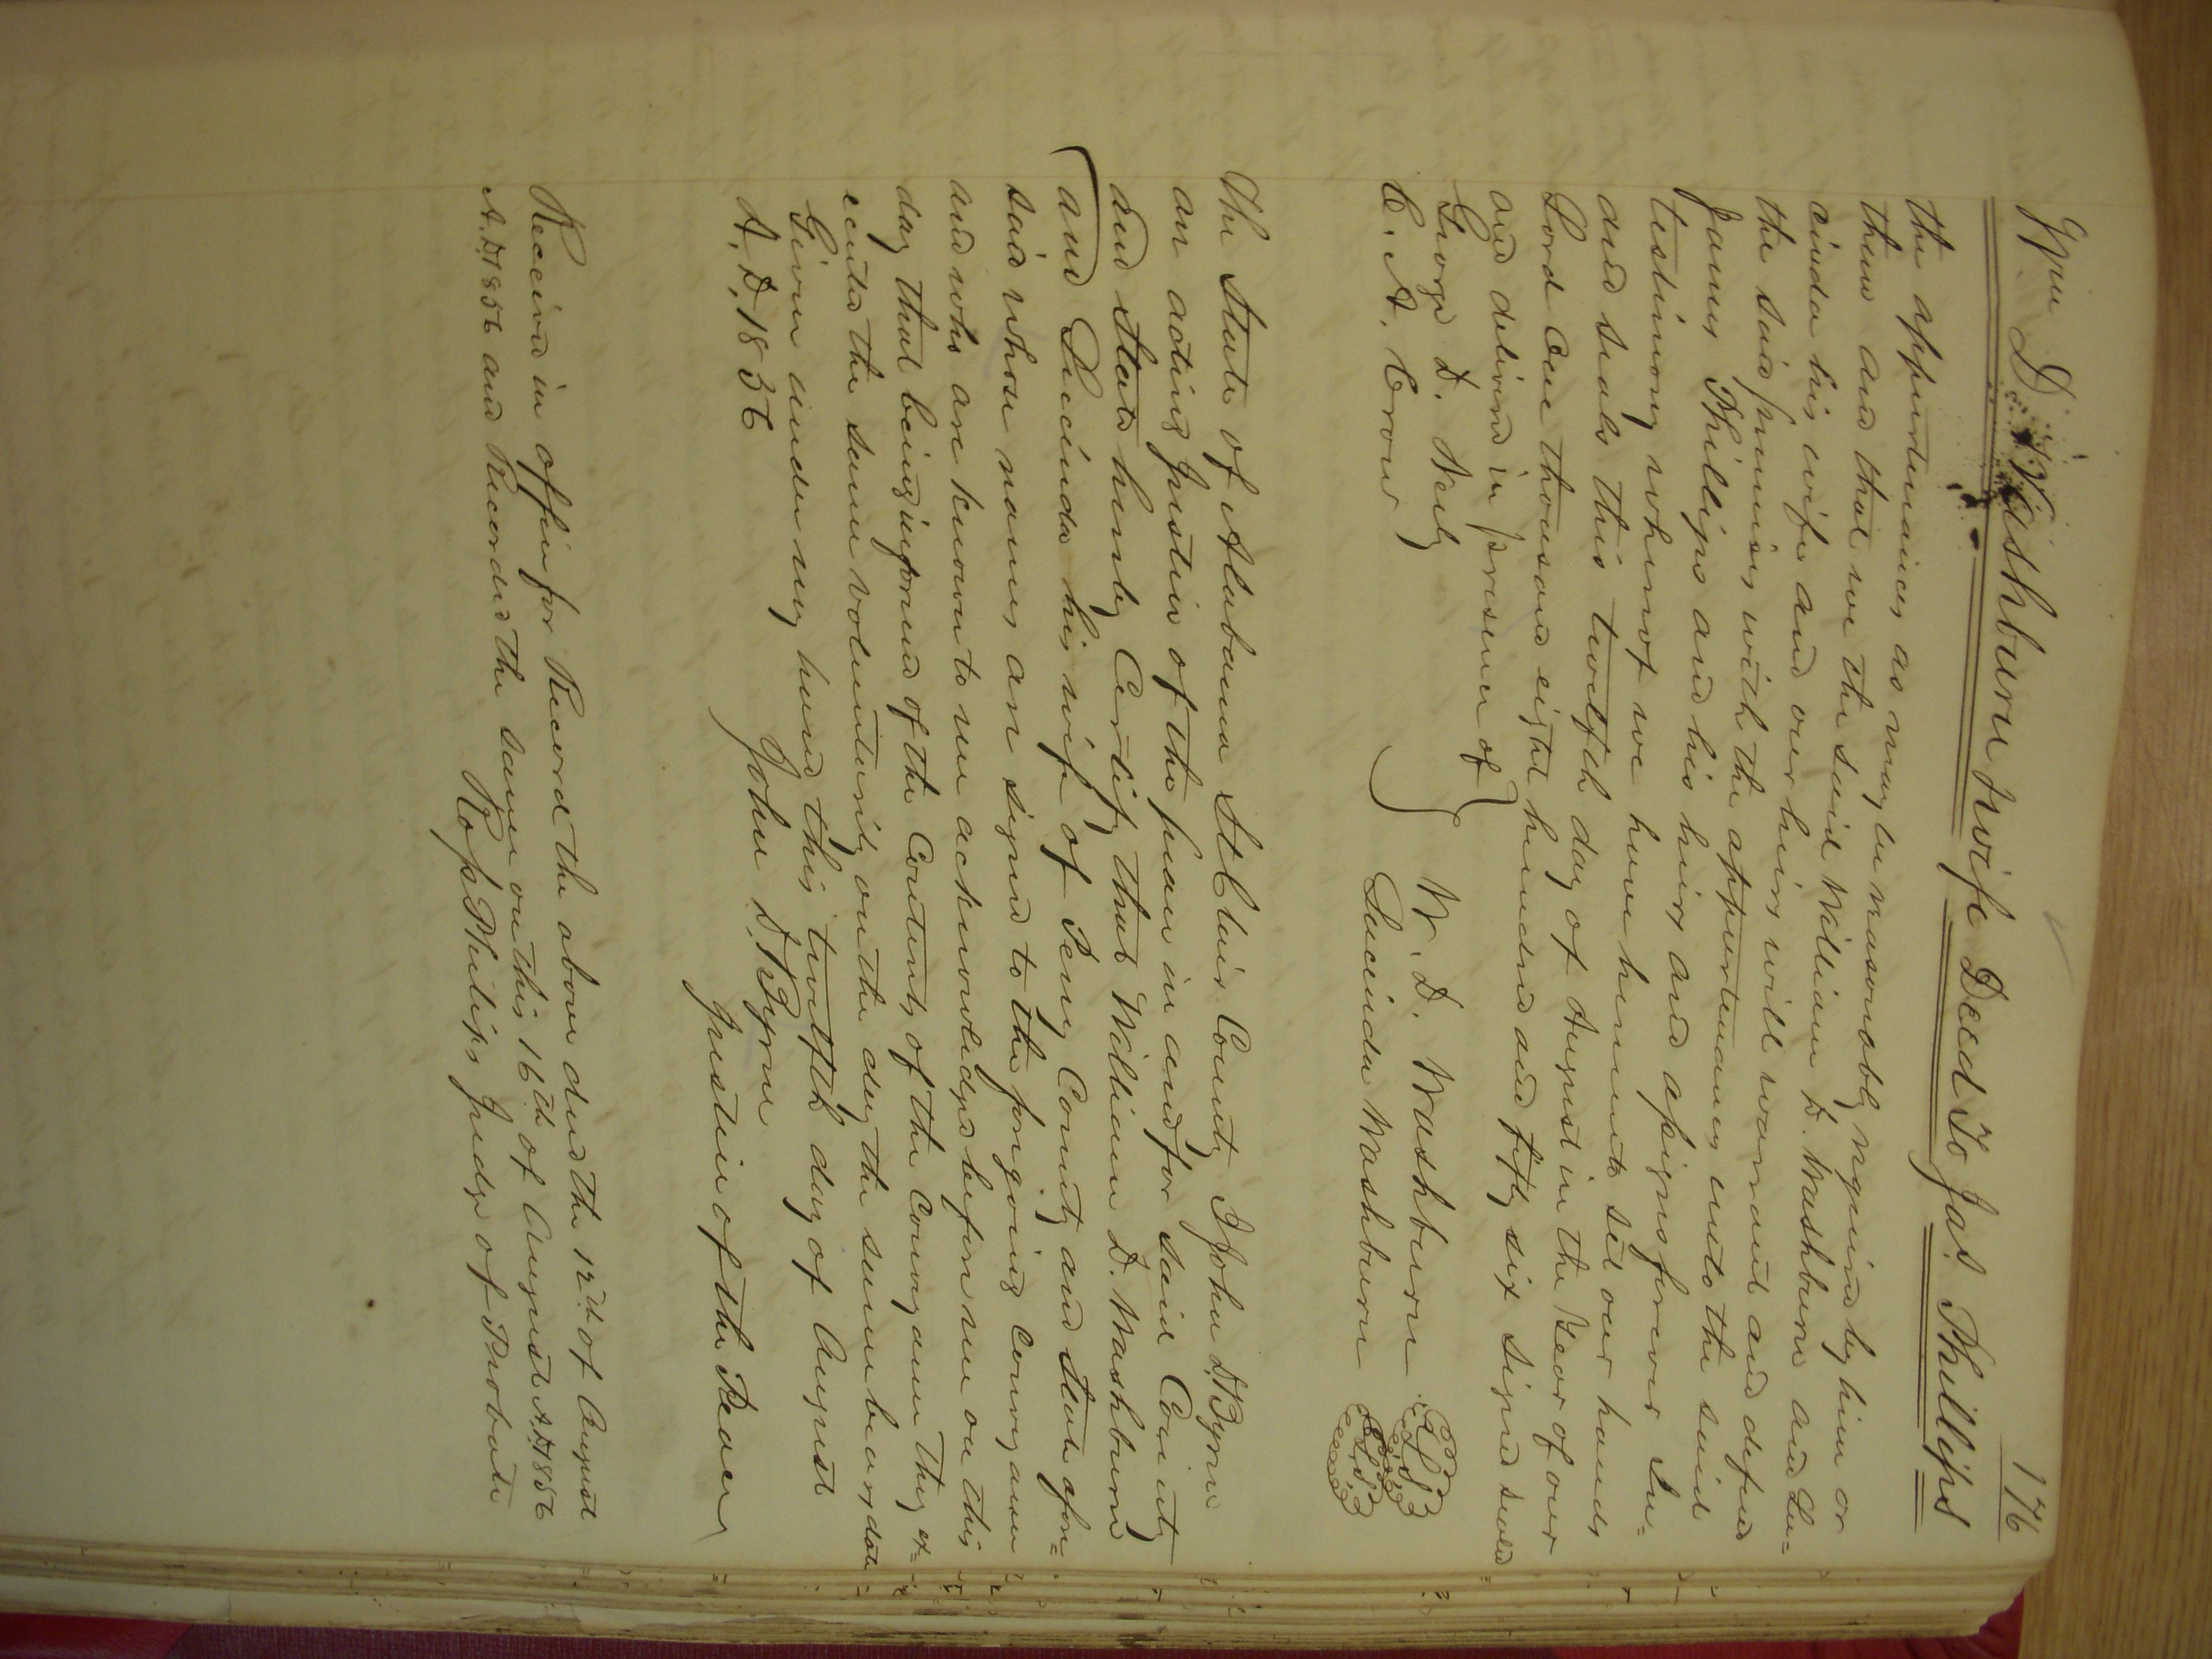 176
Wm D. Washburn & wife Deed To Jas. Phillips
the appurtenances as may be reasonably required by him or
them and that we the said William D. Washburn and Lu=
cinda his wife and our heirs will warrant and defend
the said premises with the appurtenances unto the said
James Phillips and his heirs and assigns forever In=
testimony whereof we have hereunto set our hands
and seals this twelfth day of August in the Year of our
Lord One thousand eight hundred and fifty six signed sealed
and delivered in presence of }
George D. Nealy
C. A. Crow }
W. D. Washburn L.S.
Lucinda Washburn L.S.
The State of Alabama St Clair County I John D. Byrne
an acting Justice of the peace in and for said County
and State hereby Certify that William D. Washburn
and Lucinda his wife of Perry County and State afore=
said whose names are signed to the foregoing Conveyance
and who are known to me acknowledged before me on this
day that being informed of the Contents of the Conveyance they ex=
ecuted the same voluntarily on the day the same bears date
Given under my hand this twelfth day of August
A. D. 1856
John D. Byrne
Justice of the Peace
Received in office for Record the above deed the 12th of August
A.D. 1856 and Recorded the same on this 16th of August A.D. 1856
Ross Phillips Judge of Probate